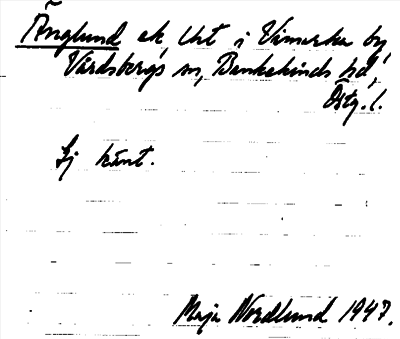 Änglund ek, Urt i Vimarka by,
Vårdsbergs sn, Bankekinds hd,
Östg. l.
Ej känt.
Maja Nordlund 1947.